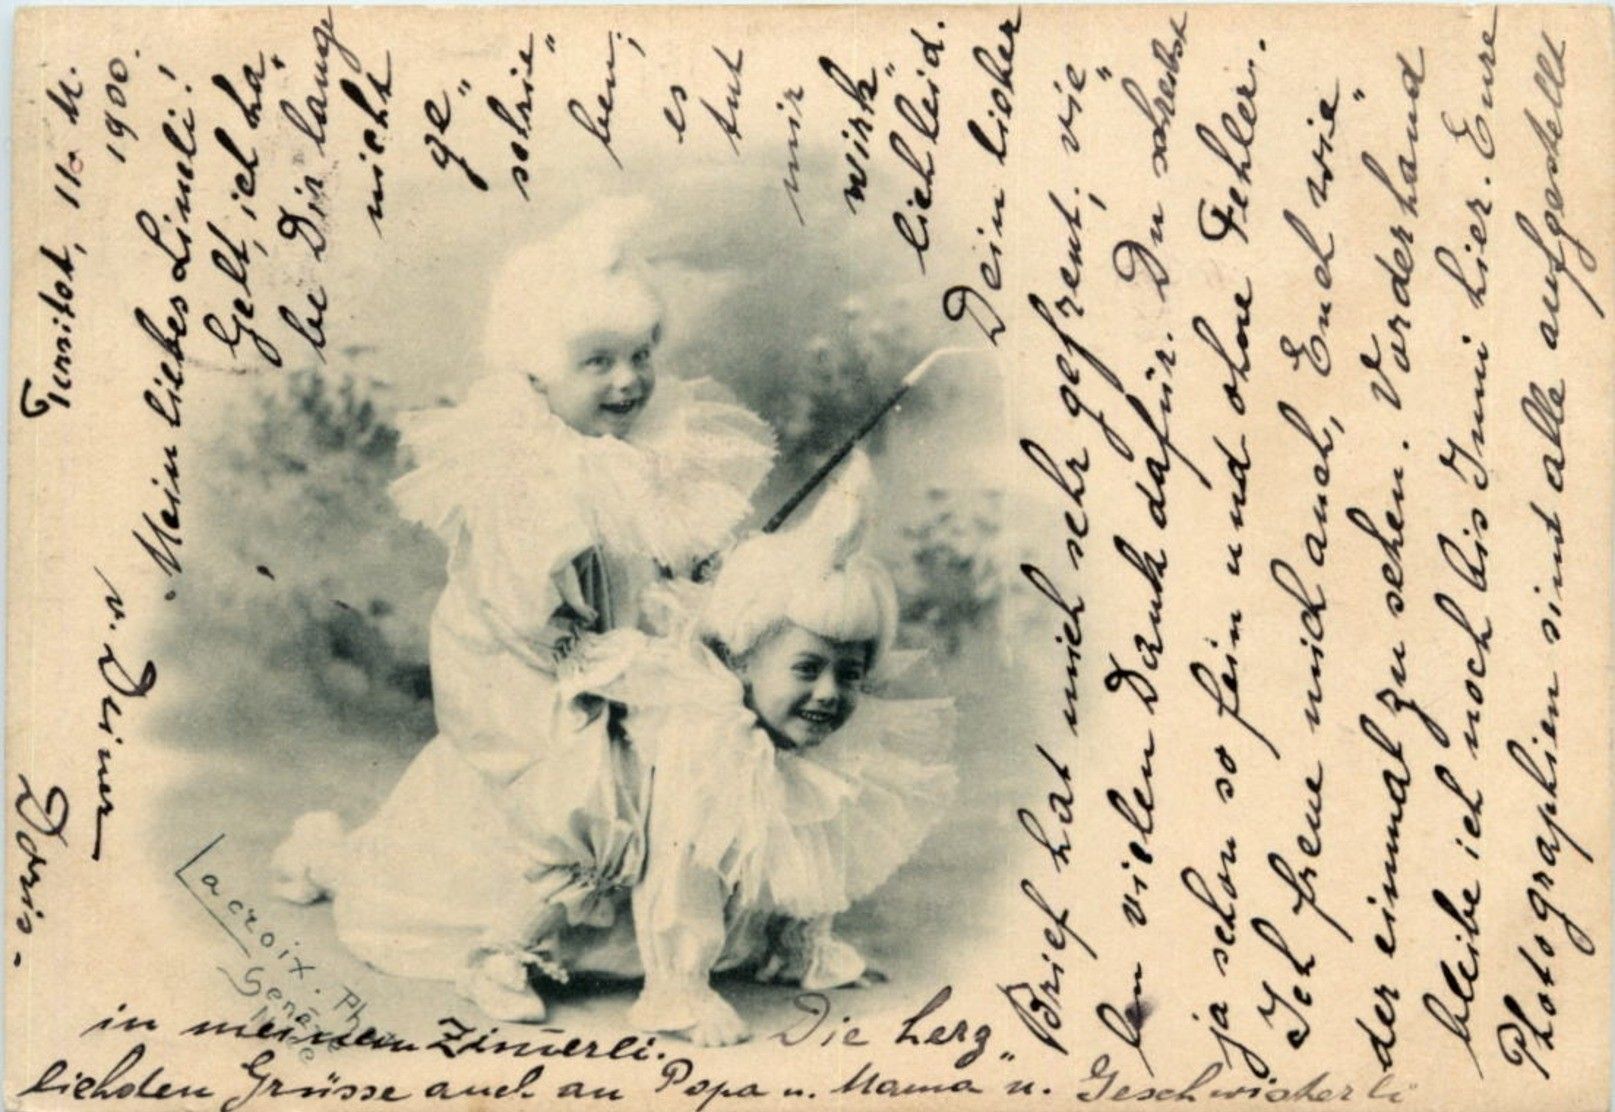 Ternitat, 11. M.
1900.
Mein liebes Limeli!
Gelt, ich ha„
be Dir lange
nicht
ge„
schrie„
ben;
es
tut
mir
wirk„
lich leid.
Dein lieber
Brief hat mich sehr gefreut, vie„
len vielen Dank dafür. Du schreibst
ja schon so fein und ohne Fehler.
Ich freue mich auch, Euch wie„
der einmal zu sehen. Vorderhand
bleibe ich noch bis Juni hier. Eure
Photographien sind alle aufgestellt
in meinem Zimerli. Die herz„
lichsten Grüsse auch an Papa u. Mama u. Geschwisterli
v. Deiner
Doris.
Lacroix. Ph
Genève